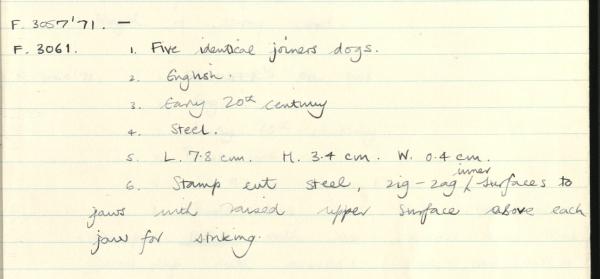 F. 3057'71. —
F. 3061. 1. Five identical joiners dogs.
2. English.
3. Early 20th century
4. Steel.
5. L. 7.8 cm. H. 3.4 cm. W. 0.4 cm.
6. Stamp cut steel, zig-zag inner surfaces to
jaws with raised upper surface above each
jaw for striking.